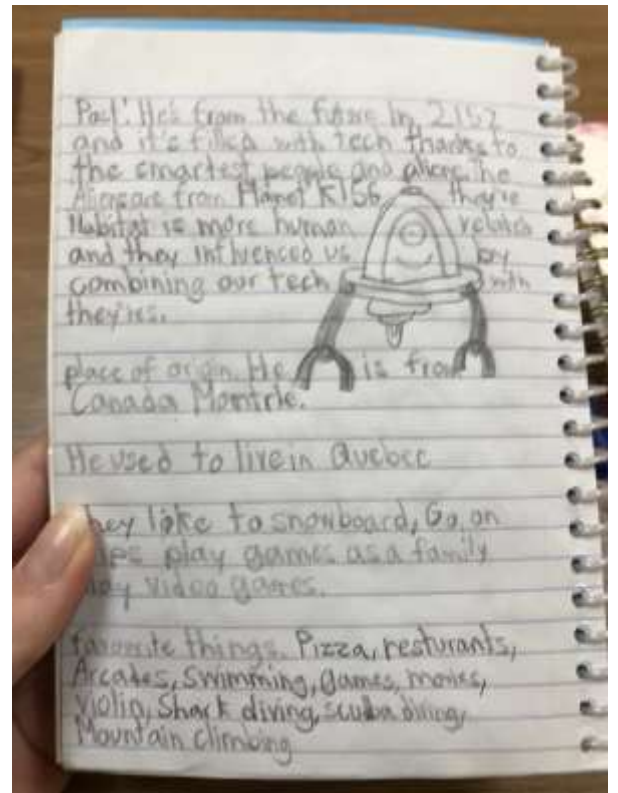 Paul: He's from the future In 2157
and it's filled with tech thanks to
the smartest people and aliens. The
Aliens are from Planet K156 they're
Habitat is more human related
and they influenced us by
combining our tech with
they'res.
place of origin. He is from
Canada Montrle.
He used to live in Quebec
They like to snowboard, Go on
trips play games as a family
play video games.
Favorite things. Pizza, resturants,
Arcades, Swimming, games, movies,
Violin, Shark diving, scuba diving,
Mountain climbing